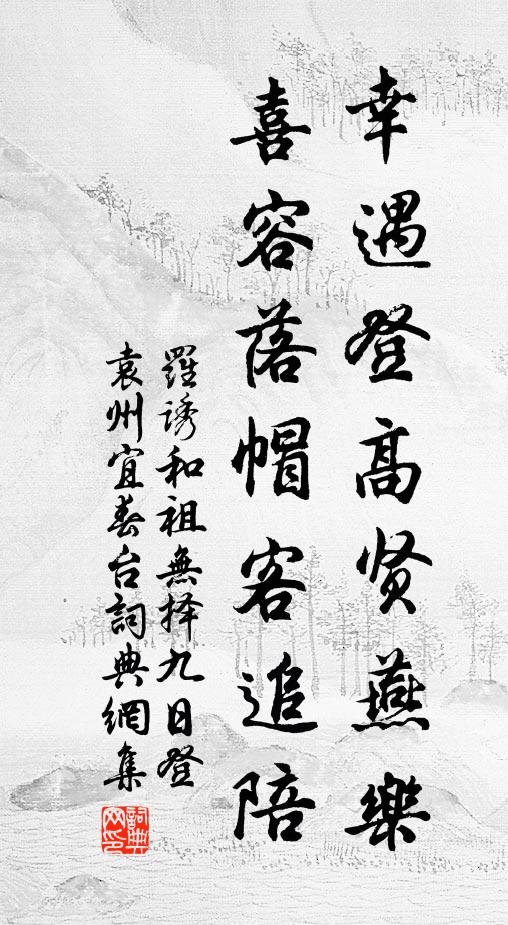 幸遇登高贤燕樂
喜容落帽客追陪
羅诱和祖無择九日登
袁州宜春台詞典網集
詞典网印